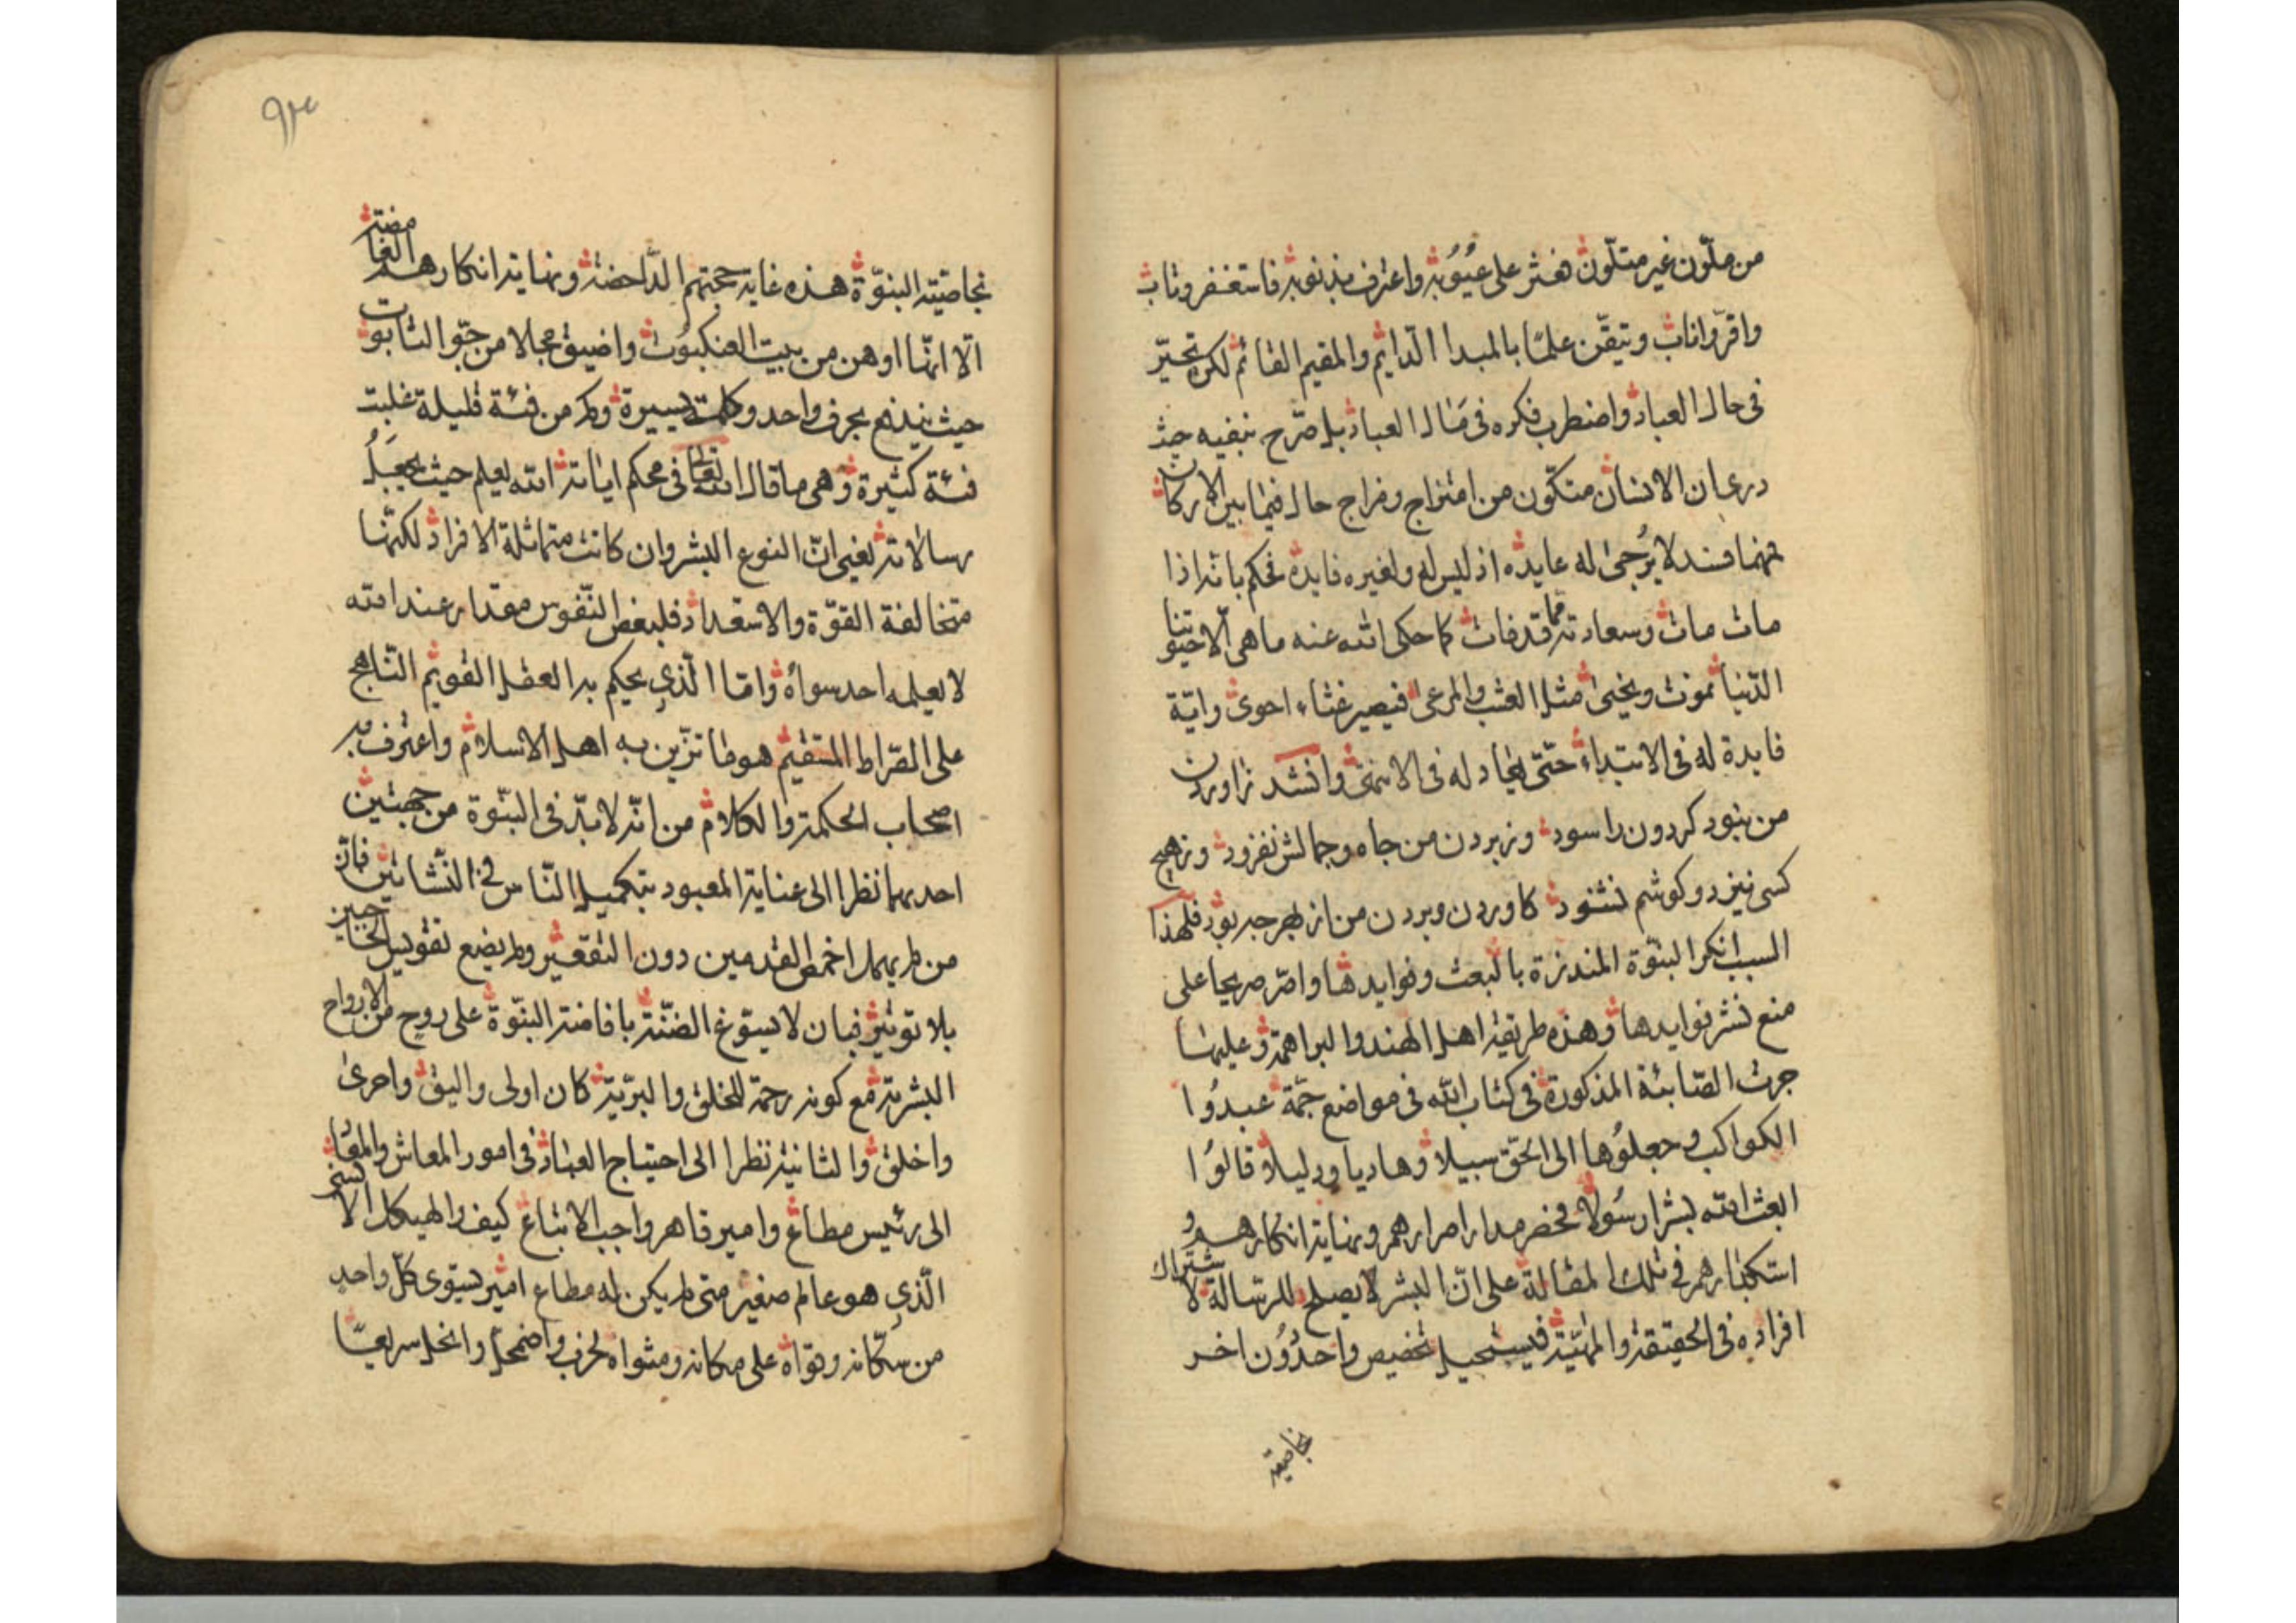 من ملوّن غير متلوّن فعثر على عُيُوبه واعترف بذنوبه فاستغفر وتاب
واقرّ واناب وتيقّن علمًا بالمبدا الدّايم والمقيم القائم لكن تحيّر
فى حال العباد واضطرب فكره فى مآل العباد بل صرّح بنفيه حيث
درى ان الانسان متكوّن من امتزاج ومزاج حال فيما بين الاركان
فسد لا يُرجى له عايده اذ ليس له ولغيره فايدة فحكم بانه اذا
مات مات وسعادته قد فات كما حكى الله عنه ما هى الّا حيوتنا
الدّنيا نموت ونحيى مثل العشب والمرعى فيصير غثاء احوى وايّة
فايدة له فى الابتداء حتّى يعاد له فى الانتهى وانشد زاوردن
من نبود كردون را سود وز بردن من جاه وجمالش نفزود وز هيچ
كسى نيز دو كوشم نشنود كاوردن وبردن من از بهر چه بود فلهذا
السبب انكر النبوّة المنذرة بالبعث وفوايدها واصرّ صريحا على
منع نشر فوايدها وهذه طريقة اهل الهند والبراهمة وعليها
جرت الصّابئة المذكورة فى كتاب الله فى مواضع جمّة عبدُوا
الكواكب وجعلوُها الى الحقّ سبيلا وهاديا ودليلا قالوُا
ابعث الله بشرا رسُولا فحضر مدار اصرارهم ونهاية انكارهم و
استكبارهم فى تلك المقالة على انّ البشر لا يصلح للرسالة لاشتراك
افراده فى الحقيقة والمهيّة فيستحيل تخصيص واحد دُون اخر
بخاصية
٩٣
بخاصيته النبوّة هذه غاية حجتهم الدّاحضة ونهاية انكارهم الغامضة
الّا انّها اوهن من بيت العنكبوُت واضيق مجالا من جوّ التابوت
حيث يندفع بحرف واحد وكلمة يسيرة وكم من فئة قليلة غلبت
فئة كثيرة وهى ما قال الله تعالى فى محكم اياته الله يعلم حيث يجعَلُ
رسالاته يعنى انّ النوع البشر وان كانت متماثلة الافراد لكنّها
متخالفة القوّة والاستعداد فلبعض النّفوس مقدار عند الله
لا يعلمه احد سواه وامّا الّذى يحكم به العقل القويم النّاهج
على الصّراط المستقيم هو ما تزيّن به اهل الاسلام واعترف به
اصحاب الحكمة والكلام من انّه لا بدّ فى النبّوة من جهتين
احديهما نظرا الى عناية المعبود بتكميل النّاس فى النّشاتين فانّ
من لم يهمل اخمص القدمين دون التقعير ولم يضع تقويس الحاجبين
بلا توتير فبان لا يسوّغ الضنّة بافاضة النبوّة على روح من الارواح
البشرية مع كونه رحمة للخلق والبريّة كان اولى واليق واحرى
واخلق والثانية نظرا الى احتياج العباد فى امور المعاش والمعاد
الى رئيس مطاع وامير قاهر واجب الاتباع كيف والهيكل الانسى
الّذى هو عالم صغير متى لم يكن له مطاع امير يستوى كلّ واحد
من سكّانه وقواه على مكانه ومثواه لخرب واضمحلّ وانحل سريعًا